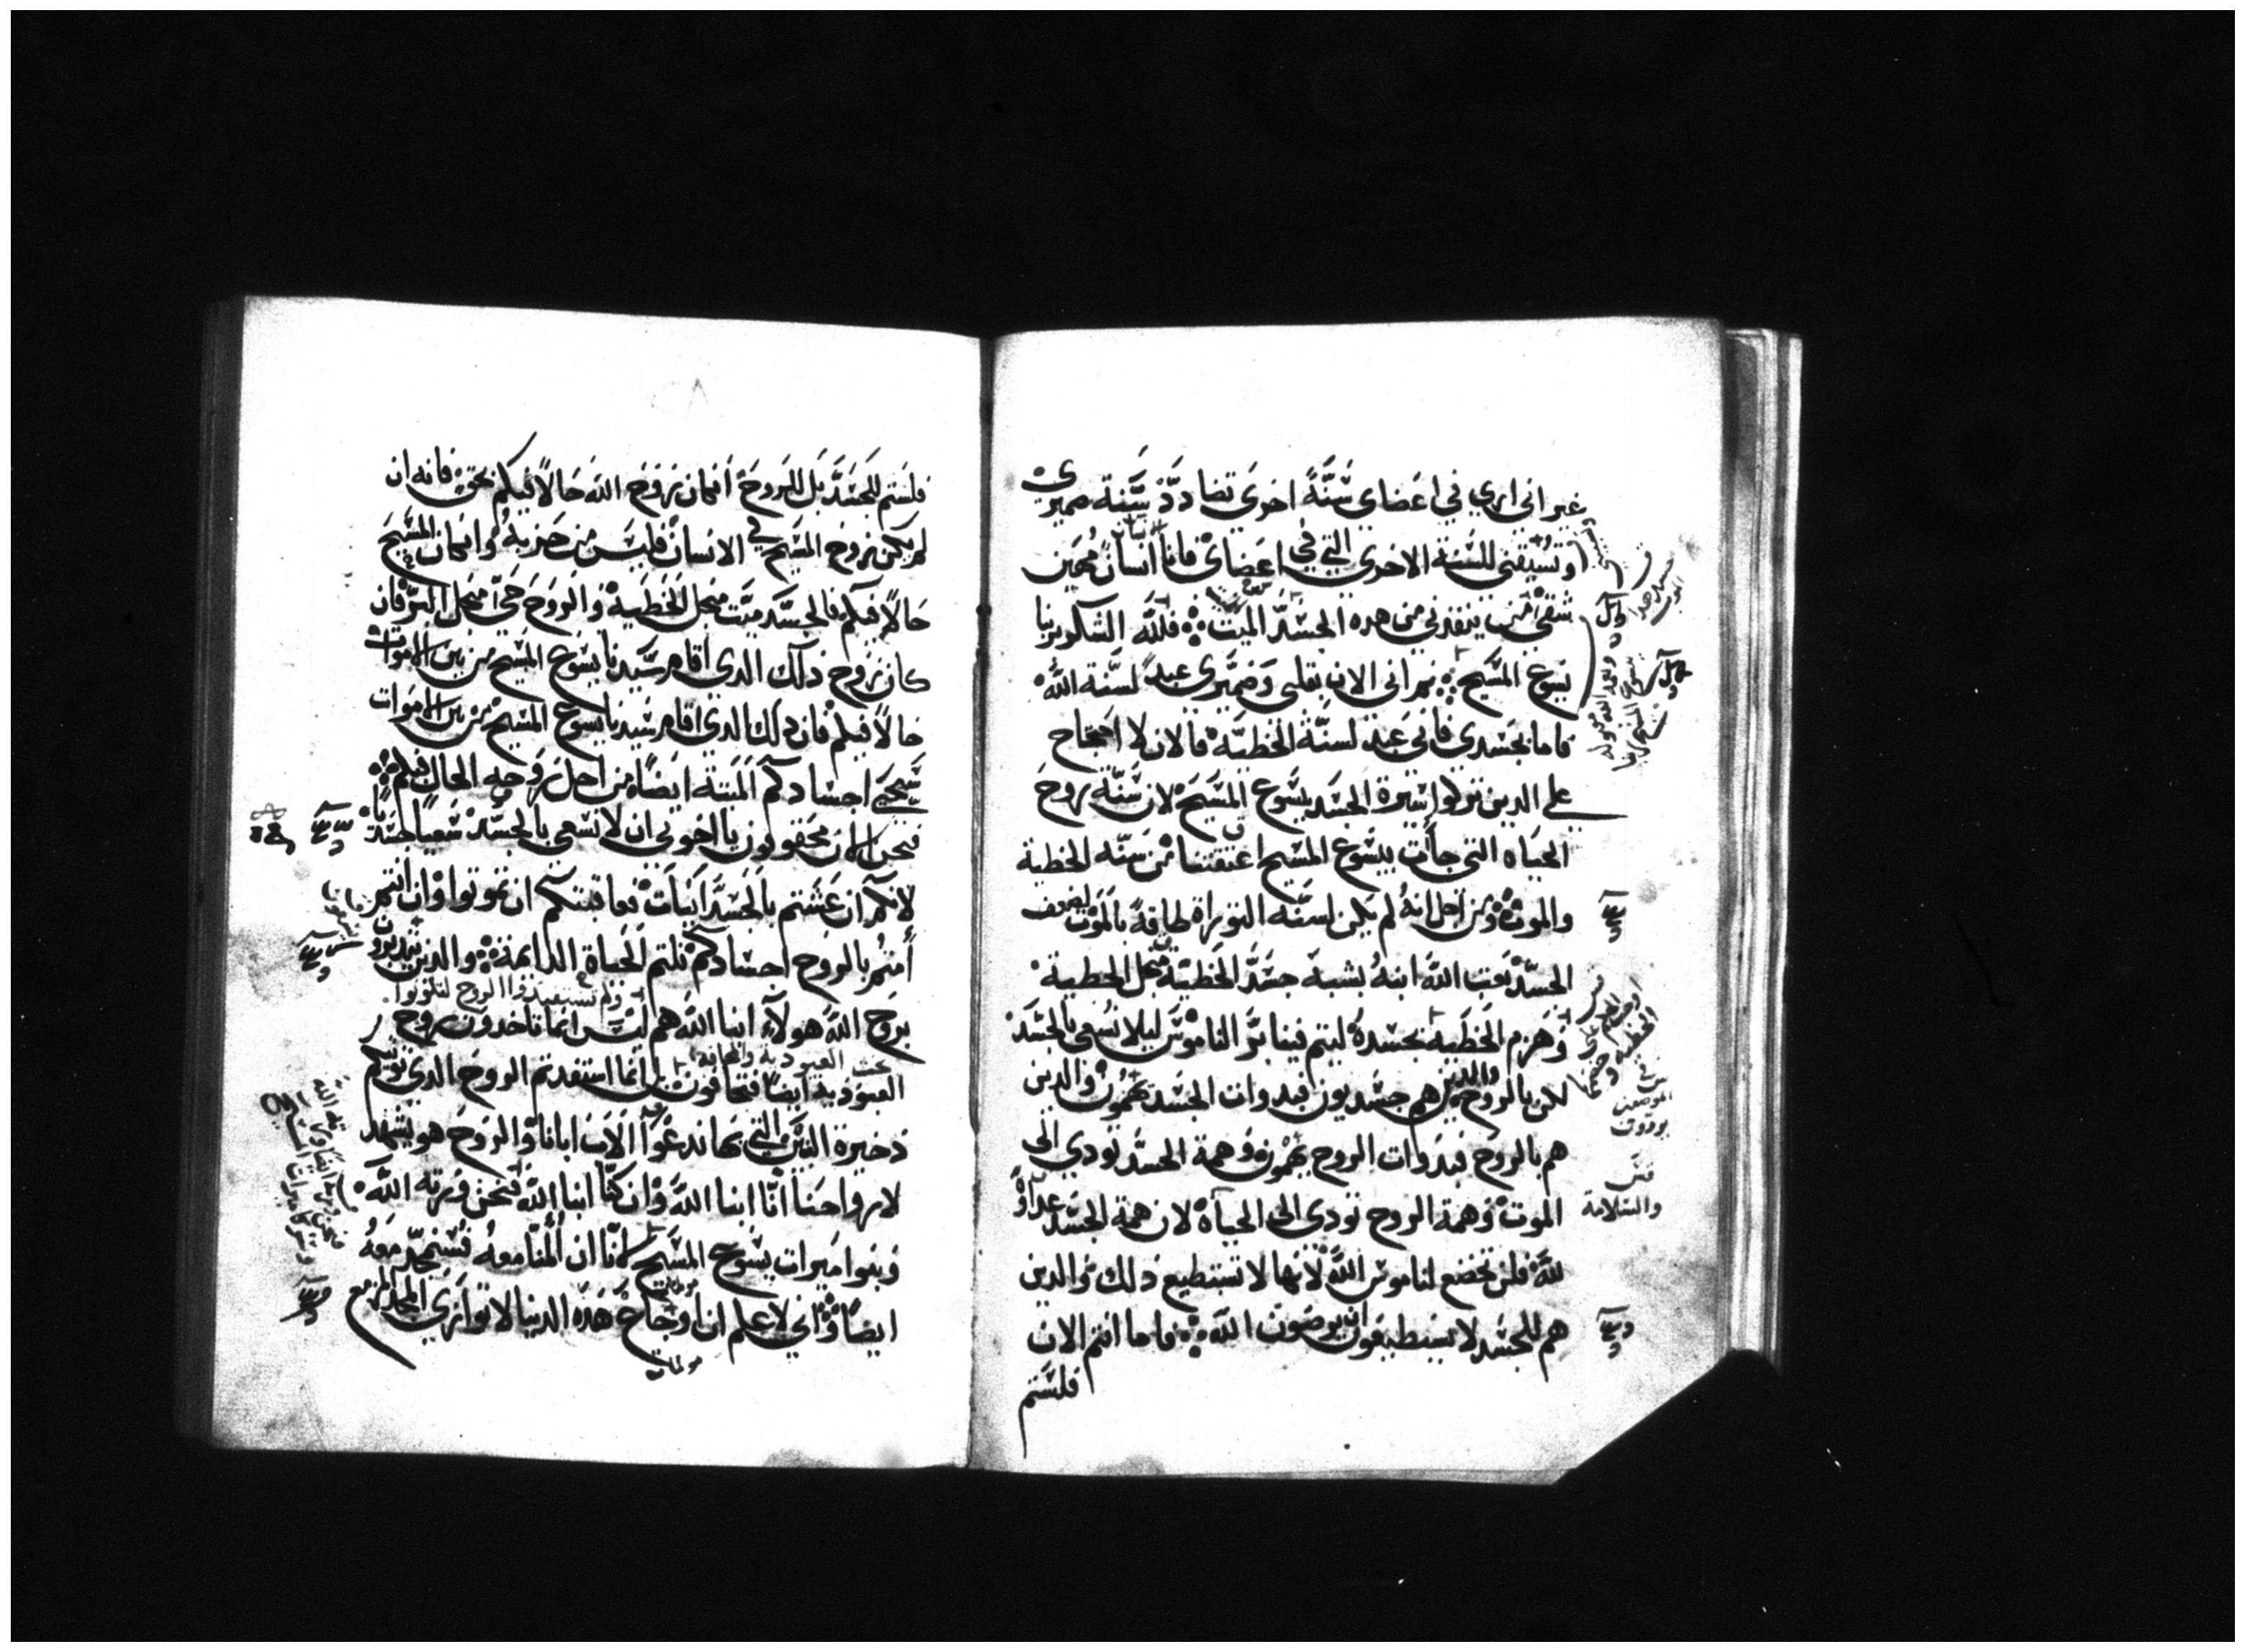 غير اني اري في اعضاي سنة اخري تضادد سنة ضميري
وتسيقني للسنة الاخري التي في اعضاي فانا انسان مهين
شقي من ينقذني من هده الجسد الميت فلله الشكر بربنا
يسوع المسيح نراني الان بقلبي وضميري عبد لسنة الله
فاما بجسدي فاني عبد لسنة الخطية فالان لا احتجاج
علي الدين تركوا سيرة الجسد بيسوع المسيح لان سنة روح
الحياه التي جات بيسوع المسيح اعتقتنا من سنه الخطية
والموت ومن اجل انه لم يكن لسنه التوراة طاقة بالموت لضعف
الجسد بعث الله ابنه بشبه جسد الخطية من اجل الخطية
وهزم الخطية بجسده ليتم فينا بر الناموس ليلا نسعي بالجسد
لكن بالروح والدين هم جسديون فبدوات الجسد يهمون والدين
هم بالروح فبدوات الروح يهمون وهمة الجسد تودي الي
الموت وهمة الروح تودي الي الحياة لان همة الجسد عداوة
لله فلن تخضع لناموس الله لانها لا تستطيع ذلك والدين
هم للجسد لا يستطيعون ان يرضون الله فاما انتم الان
فلستم
والسلامة
٢٨
فلستم للجسد بل للروح ان كان روح الله حالا فيكم بحق فانه ان
لم يكن روح المسيح في الانسان فليس من حزبه وان كان المسيح
حالا فيكم فالجسد ميت من اجل الخطية والروح حي من اجل البر فان
كان روح ذلك الدي اقام سيدنا يسوع المسيح من بين الاموات
حالا فيكم فان ذلك الدي اقام سيدنا يسوع المسيح من بين الاموات
سيحيي اجسادكم الميتة ايضا من اجل روحه الحال فيكم
فنحن الان محقوقون يا اخوتي ان لا نسعي بالجسد سعيا جسديا
لانكم ان عشتم بالجسدانيات فعاقبتكم ان تموتوا وان انتم
امتم بالروح اجسادكم نلتم الحياة الدايمة والدين يتدبرون
بروح الله هولاء ابنا الله هم ليس انما تاخدون روح
ولم تستفيدوا الروح لتكونوا
العبودية ايضا فتخافون بل انما استفدتم الروح الدي توتيكم
تحت العبودية والمخافة
ذخيرة البنين التي بها ندعوا الاب ابانا والروح هو يشهد
لارواحنا انا ابنا الله وان كنا ابنا الله فنحن ورثه الله
وبنوا ميرات يسوع المسيح لانا ان المنا معه فسنمجد معه
ايضا واني لاعلم ان اوجاع هده الدنيا لا توازي المجد المزمع